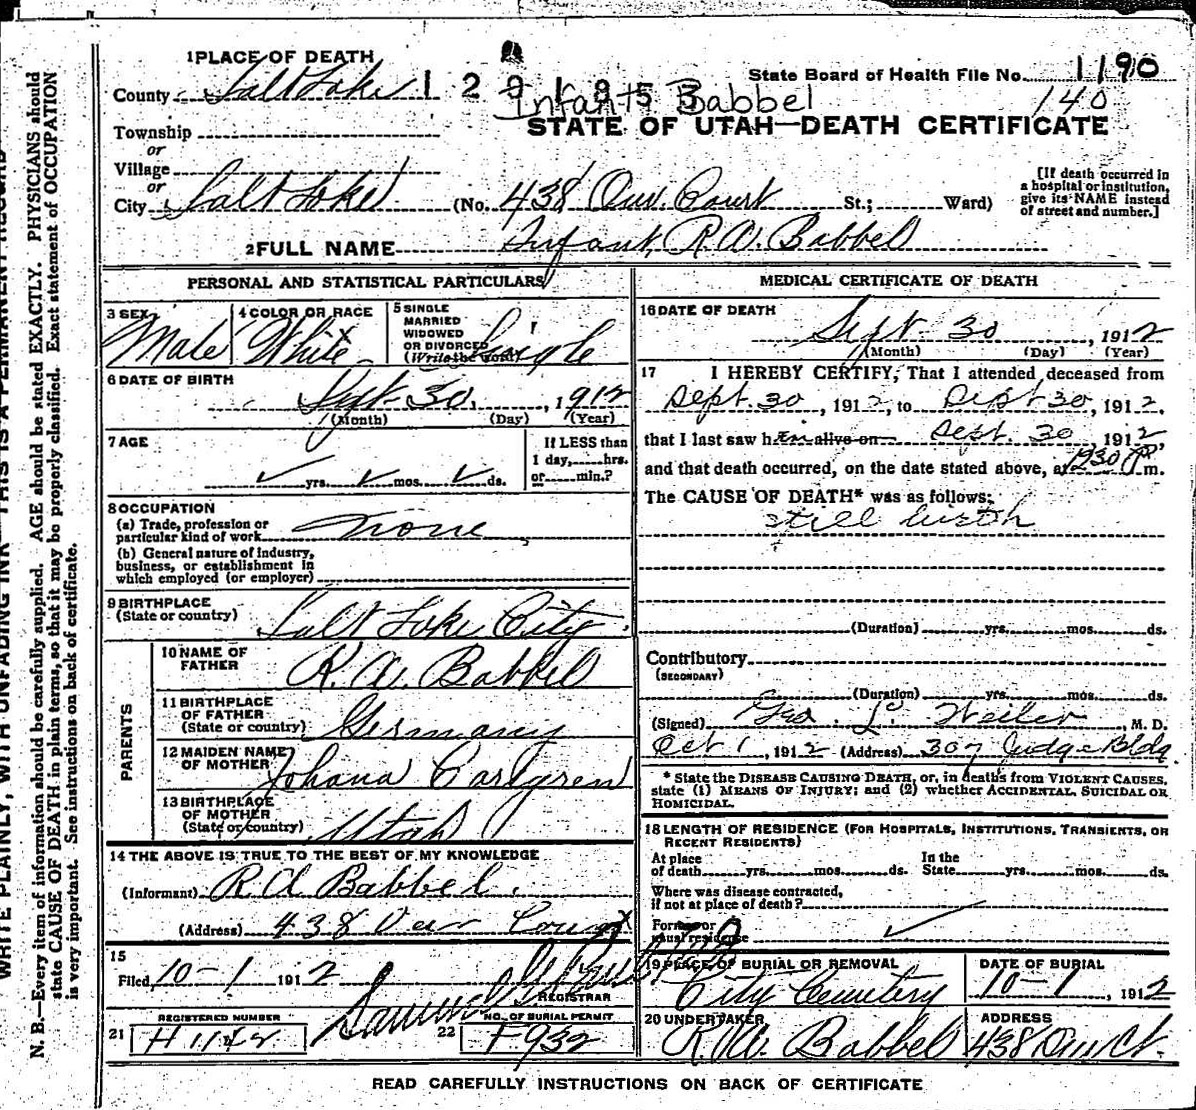 1 PLACE OF DEATH
State Board of Health File No. 1190
County Salt Lake
Infant Babbel
140
STATE OF UTAH—DEATH CERTIFICATE
Township
or
Village
or
City Salt Lake (No. 438 Ouv. Court St.; Ward)
[If death occurred in
a hospital or institution,
give its NAME instead
of street and number.]
2 FULL NAME Infant, R. W. Babbel
PERSONAL AND STATISTICAL PARTICULARS
3 SEX Male
4 COLOR OR RACE White
5 SINGLE
MARRIED
WIDOWED
OR DIVORCED
(Write the word) Single
6 DATE OF BIRTH
Sept. 30, 1912
(Month) (Day) (Year)
7 AGE
yrs. mos. ds.
If LESS than
1 day, hrs.
or min.?
8 OCCUPATION
(a) Trade, profession or
particular kind of work none
(b) General nature of industry,
business, or establishment in
which employed (or employer)
9 BIRTHPLACE
(State or country) Salt Lake City.
PARENTS
10 NAME OF
FATHER R. W. Babbel
11 BIRTHPLACE
OF FATHER
(State or country) Germany
12 MAIDEN NAME
OF MOTHER Johana Carlgren
13 BIRTHPLACE
OF MOTHER
(State or country) Utah
14 THE ABOVE IS TRUE TO THE BEST OF MY KNOWLEDGE
(Informant) R A Babbel.
(Address) 438
15
Filed 10-1 1912
REGISTRAR
REGISTERED NUMBER
21 H 1142
NO. OF BURIAL PERMIT
22 F932
MEDICAL CERTIFICATE OF DEATH
16 DATE OF DEATH
Sept. 30, 1912
(Month) (Day) (Year)
17 I HEREBY CERTIFY, That I attended deceased from
Sept. 30, 1912, to Sept 30, 1912,
that I last saw h im alive on Sept. 30 1912,
and that death occurred, on the date stated above, at 930 P m.
The CAUSE OF DEATH* was as follows:
still birth
(Duration) yrs. mos. ds.
Contributory
(SECONDARY)
(Duration) yrs. mos. ds.
(Signed) Geo. L. Weiler, M. D.
Oct 1, 1912 (Address) 307 Judge Bldg
* State the DISEASE CAUSING DEATH, or, in deaths from VIOLENT CAUSES,
state (1) MEANS OF INJURY; and (2) whether ACCIDENTAL, SUICIDAL OR
HOMICIDAL.
18 LENGTH OF RESIDENCE (FOR HOSPITALS, INSTITUTIONS, TRANSIENTS, OR
RECENT RESIDENTS)
At place
of death yrs. mos. ds.
In the
State yrs. mos. ds.
Where was disease contracted,
if not at place of death?
Former or
usual residence
19 PLACE OF BURIAL OR REMOVAL
City Cemetery
DATE OF BURIAL
10-1, 1912
20 UNDERTAKER
R. W. Babbel
ADDRESS
438 Ouv Ct.
READ CAREFULLY INSTRUCTIONS ON BACK OF CERTIFICATE
N. B.—Every item of information should be carefully supplied. AGE should be stated EXACTLY. PHYSICIANS should
state CAUSE OF DEATH in plain terms, so that it may be properly classified. Exact statement of OCCUPATION
is very important. See instructions on back of certificate.